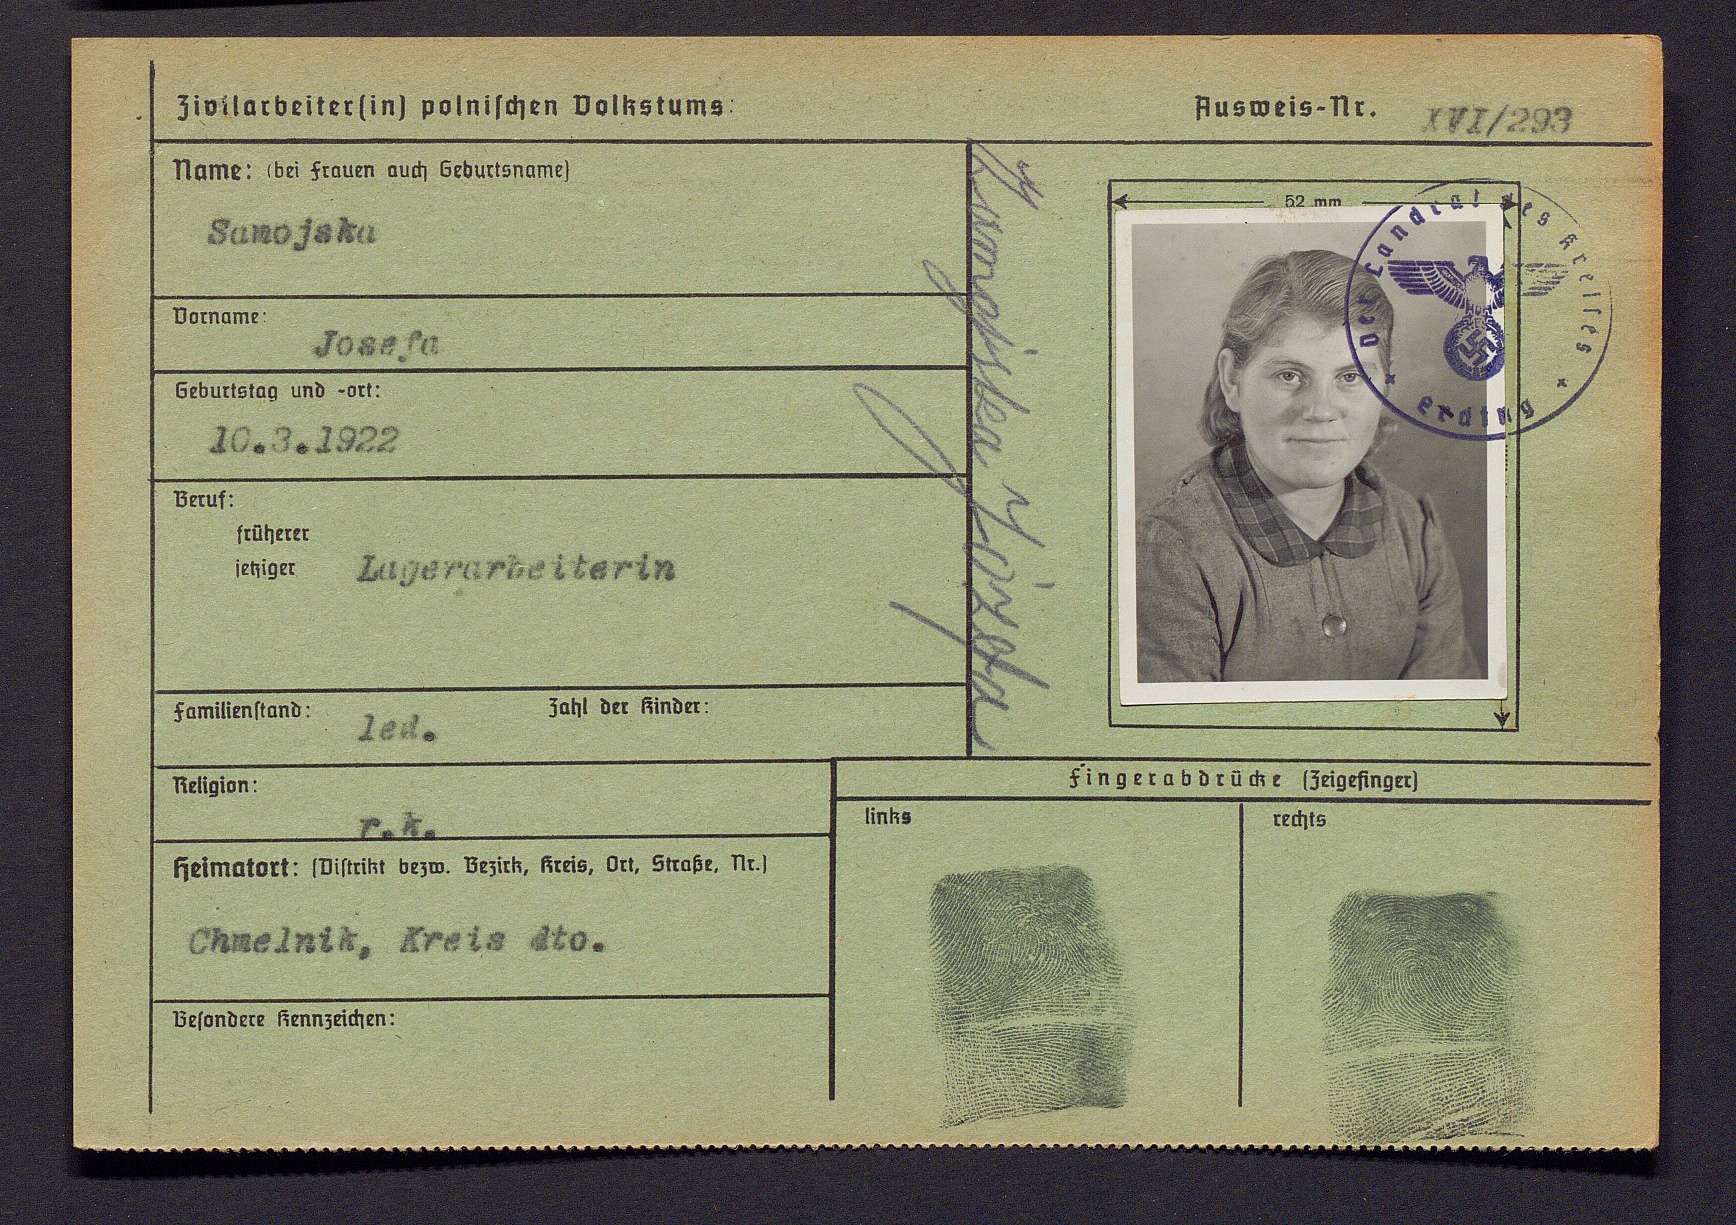 Zivilarbeiter(in) polnischen Volkstums:
Ausweis-Nr. XVI/293
Name: (bei Frauen auch Geburtsname)
Samojska
Vorname:
Josefa
Geburtstag und -ort:
10.3.1922
Beruf:
früherer
jetziger Lagerarbeiterin
Familienstand: led. Zahl der Kinder:
Religion:
r.k.
Heimatort: (Distrikt bezw. Bezirk, Kreis, Ort, Straße, Nr.)
Chmelnik, Kreis dto.
Besondere Kennzeichen:
Józefa
52 mm
Der Landrat des Kreises
Erding
Fingerabdrücke (Zeigefinger)
links
rechts